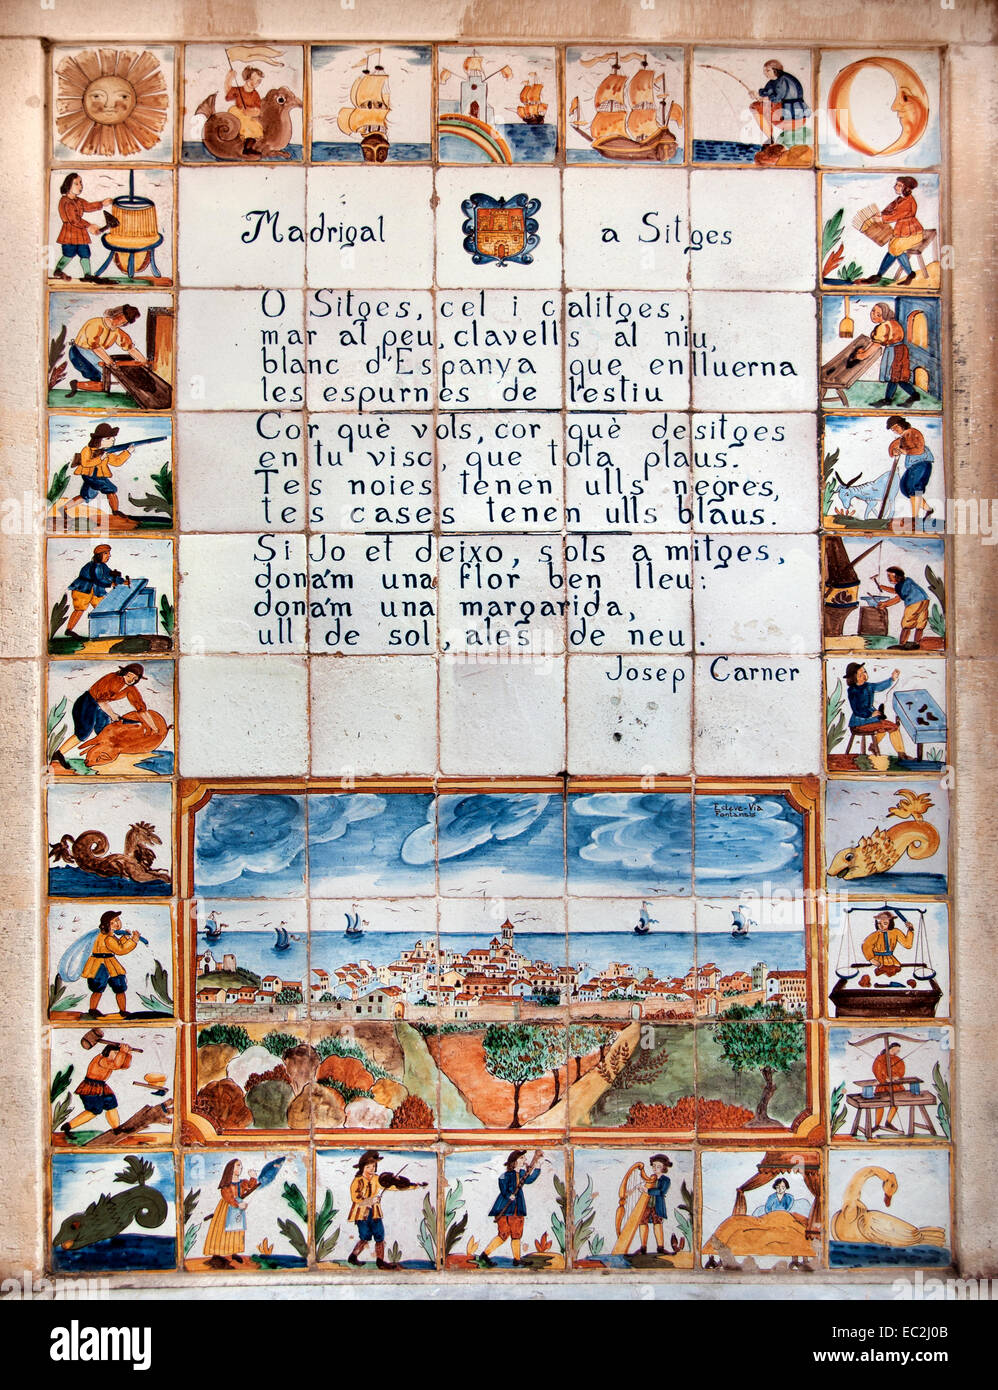 Madrigal a Sitges
O Sitges, cel i calitges,
mar al peu, clavells al niu,
blanc d'Espanya que enlluerna
les espurnes de l'estiu
Cor què vols, cor què desitges
en tu visc, que tota plaus.
Tes noies tenen ulls negres,
tes cases tenen ulls blaus.
Si Jo et deixo, sols a mitges,
dona'm una flor ben lleu:
dona'm una margarida,
ull de sol, ales de neu.
Josep Carner
Esteve-Via
Fontanals
alamy stock photo
EC2J0B
www.alamy.com